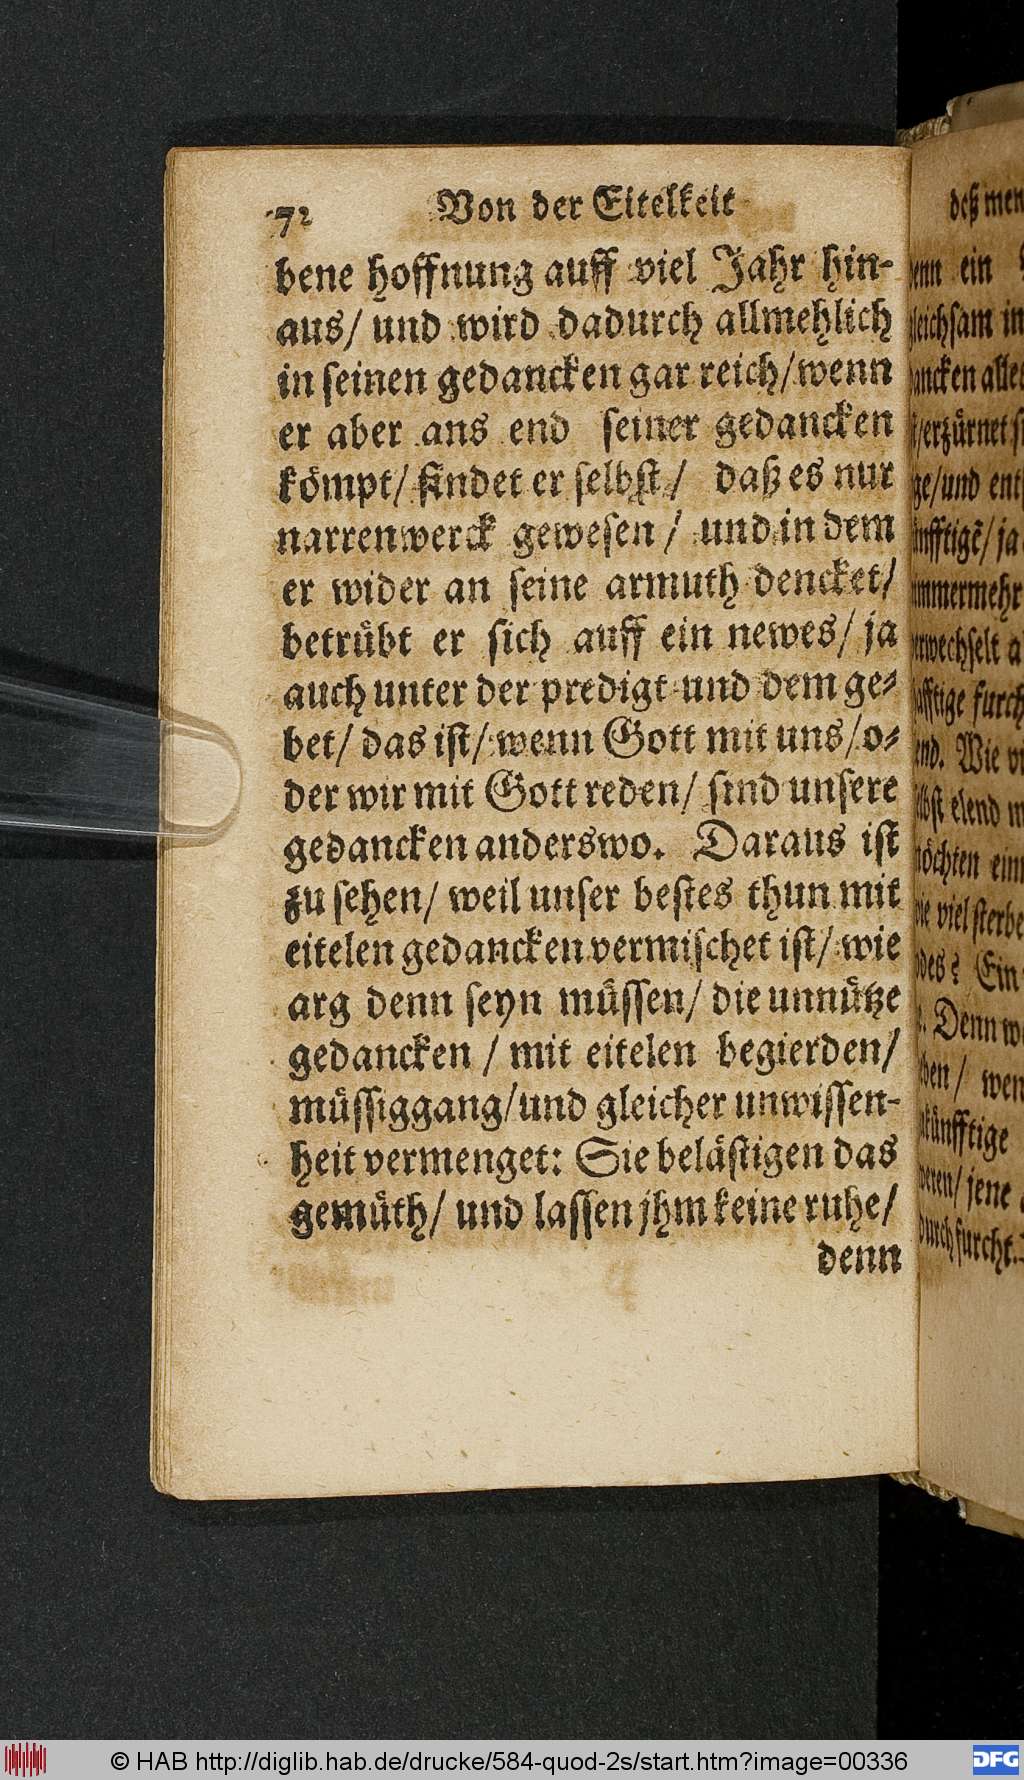 72 Von der Eitelkeit
bene hoffnung auff viel Jahr hin-
aus/ und wird dadurch allmehlich
in seinen gedancken gar reich/wenn
er aber ans end seiner gedancken
kömpt/ findet er selbst/ daß es nur
narrenwerck gewesen / und in dem
er wider an seine armuth dencket/
betrübt er sich auff ein newes/ ja
auch unter der predigt und dem ge-
bet/ das ist/ wenn Gott mit uns/o-
der wir mit Gott reden/ sind unsere
gedancken anderswo. Daraus ist
zu sehen/ weil unser bestes thun mit
eitelen gedancken vermischet ist/ wie
arg denn seyn müssen/ die unnütze
gedancken / mit eitelen begierden/
müssiggang/und gleicher unwissen-
heit vermenget: Sie belästigen das
gemüth/ und lassen jhm keine ruhe/
denn
deß men
ein
gleichsam in
ancken alle
/erzürnet
ge/und ent
ünfftigē/ ja
immermehr
erwechselt a
afftige furch
end. Wie vi
lbst elend m
möchten einn
die viel sterbe
des? Ein
. Denn we
ben/ wen
künfftige
weren/ jene
durch furcht.
© HAB http://diglib.hab.de/drucke/584-quod-2s/start.htm?image=00336
DFG